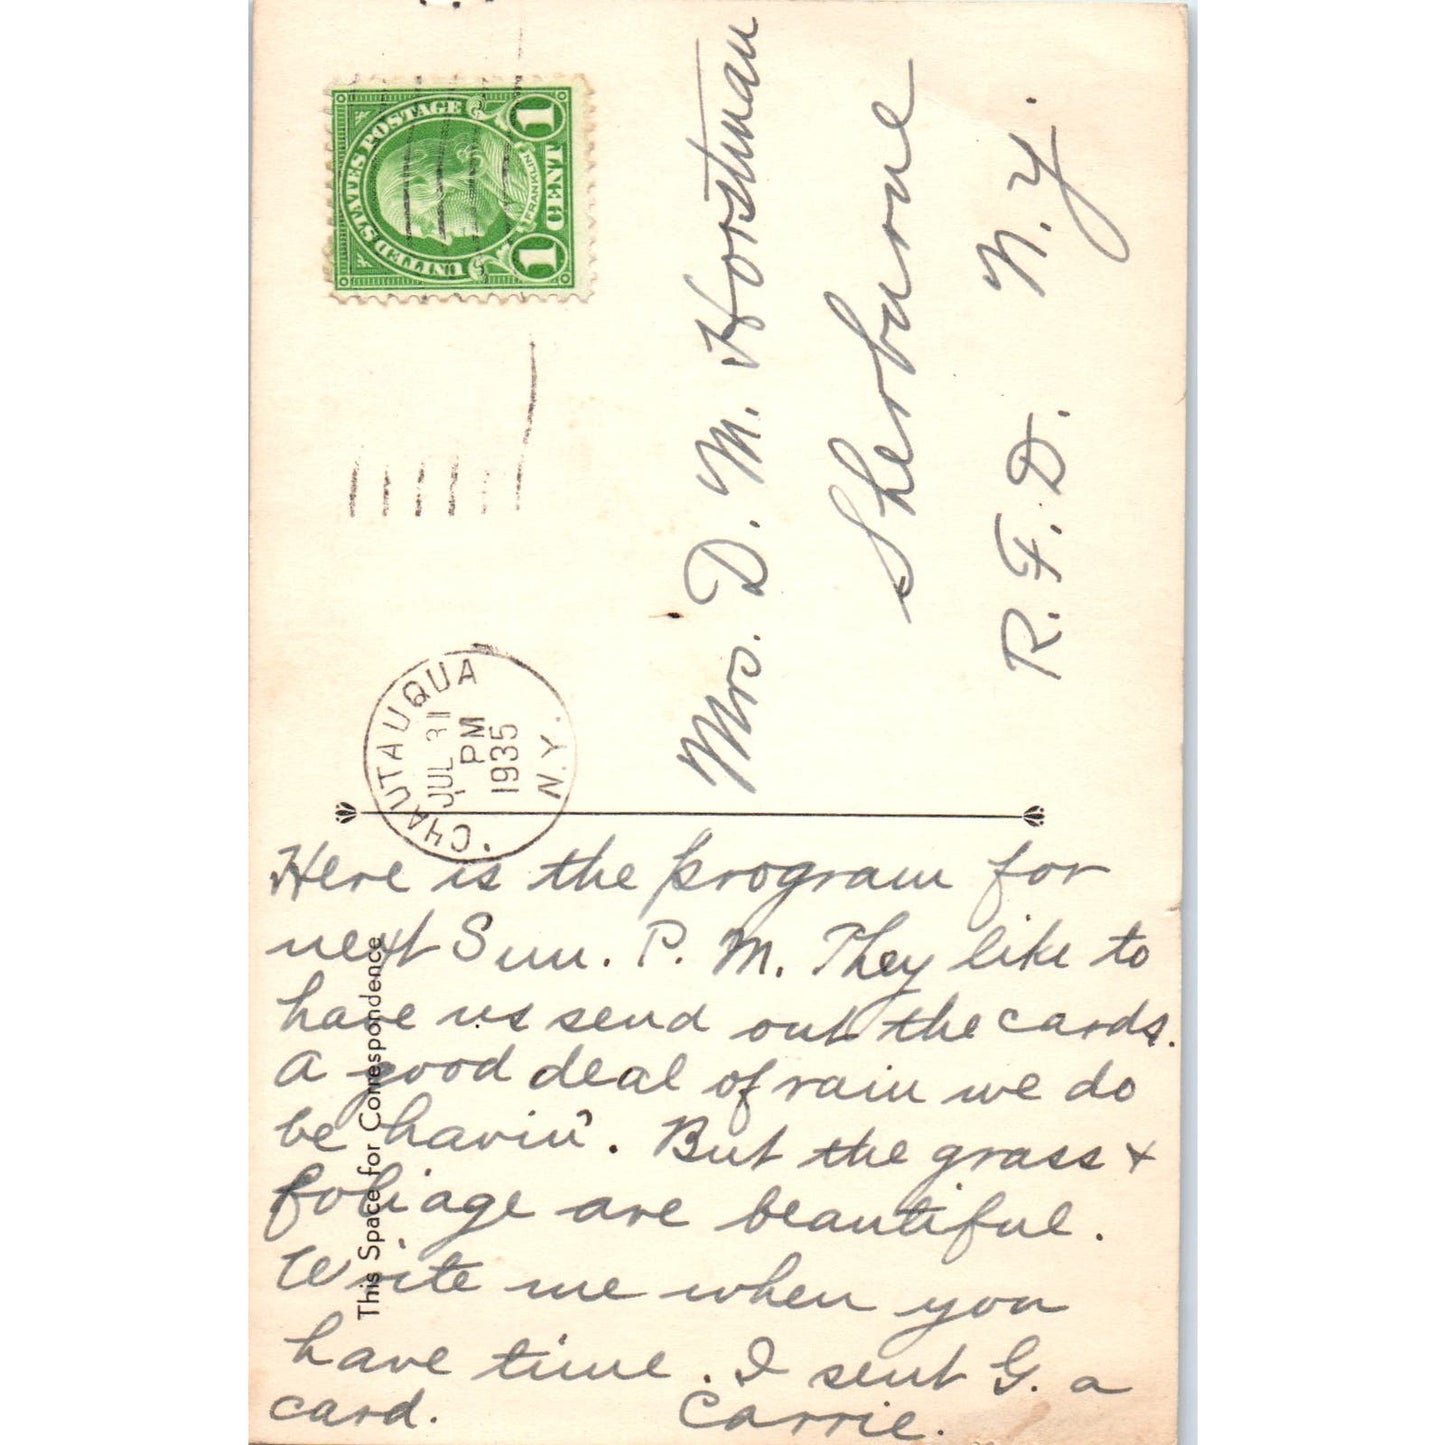 UNITED STATES POSTAGE
FRANKLIN
1 CENT 1
CHAUTAUQUA
JUL 31
PM
1935
N.Y.
Mrs. D. M. Horstman
Sherburne
R. F. D. N. Y.
This Space for Correspondence
Here is the program for
next Sun. P. M. They like to
have us send out the cards.
A good deal of rain we do
be havin'. But the grass +
foliage are beautiful.
Write me when you
have time. I sent G. a
card. Carrie.